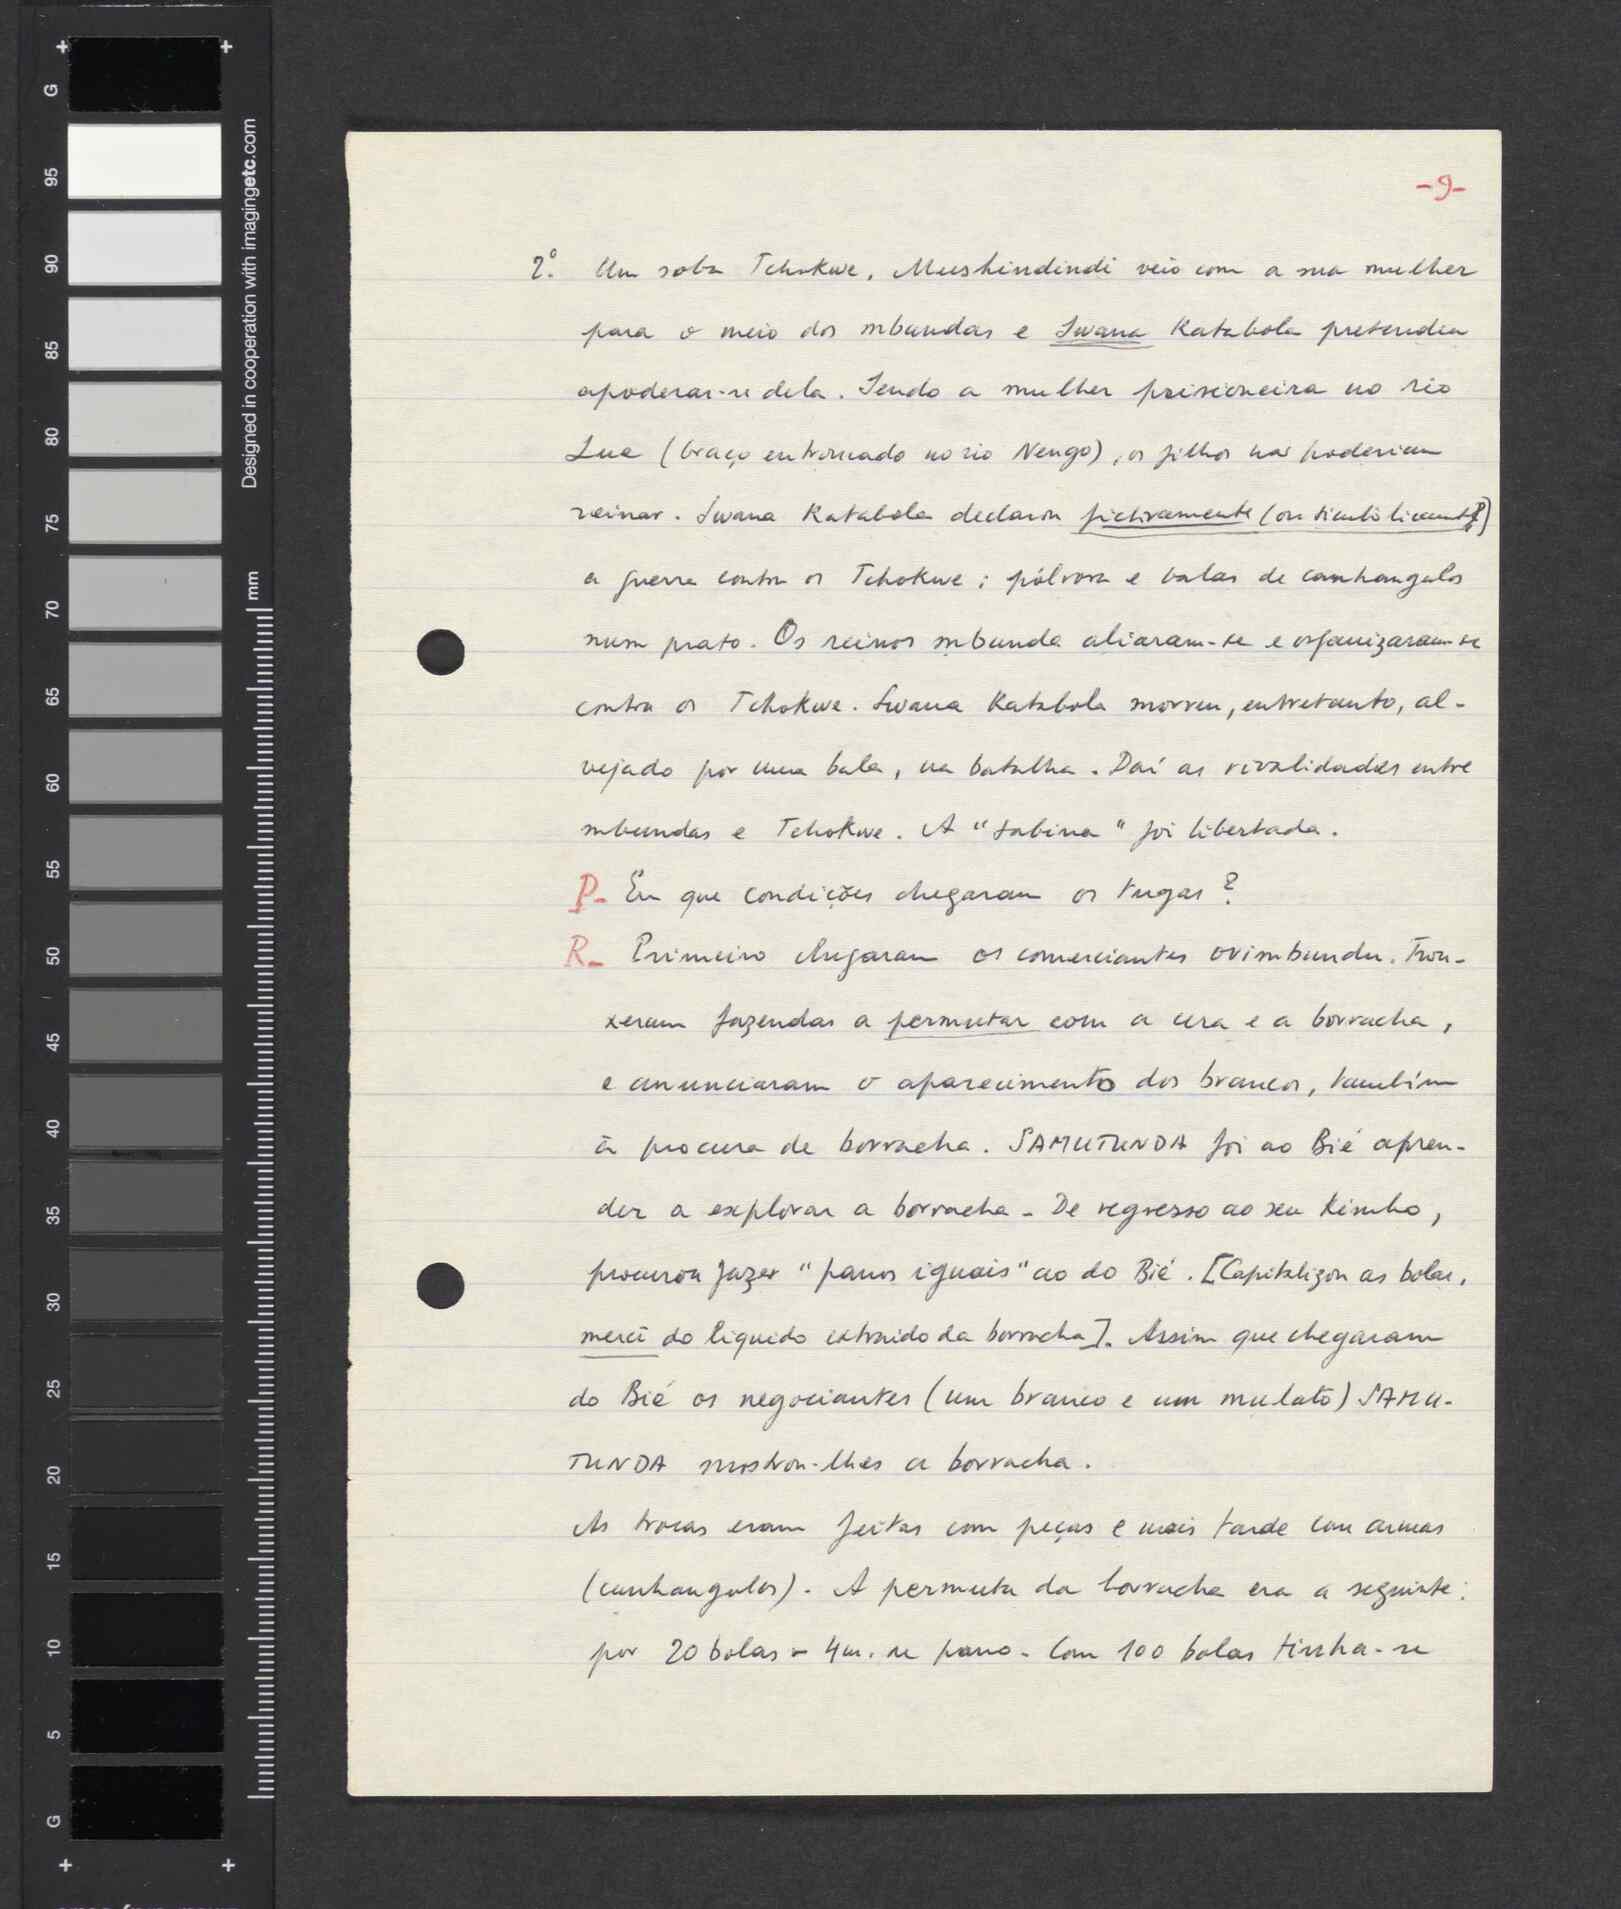 -9-
2º. Um soba Tchokwe, Mushindindi veio com a sua mulher
para o meio dos mbundas e Swana Katabola pretendeu
apoderar-se dela. Sendo a mulher prisioneira no rio
Lue (braço entroncado no rio Nengo), os filhos não poderiam
reinar. Swana Katabola declarou fictivamente (ou simbolicamente?)
a guerra contra os Tchokwe: pólvora e balas de canhangulos
num prato. Os reinos mbunda aliaram-se e organizaram-se
contra os Tchokwe. Swana Katabola morreu, entretanto, al-
vejado por uma bala, na batalha. Daí as rivalidades entre
mbundas e Tchokwe. A "sabina" foi libertada.
P- Em que condições chegaram os tugas?
R- Primeiro chegaram os comerciantes ovimbundu. Trou-
xeram fazendas a permutar com a cera e a borracha,
e anunciaram o aparecimento dos brancos, também
à procura de borracha. SAMUTUNDA foi ao Bié apren-
der a explorar a borracha - De regresso ao seu Kimbo,
procurou fazer "panos iguais" ao do Bié. [Capitalizou as bolas,
merci do líquido extraido da borracha]. Assim que chegaram
do Bié os negociantes (um branco e um mulato) SAMU-
TUNDA mostrou-lhes a borracha.
As trocas eram feitas com peças e mais tarde com armas
(canhangulos). A permuta da borracha era a seguinte:
por 20 bolas - 4m. de pano - Com 100 bolas tinha-se
G
95
90
85
80
75
70
65
60
55
50
45
40
35
30
25
20
15
10
5
G
Designed in cooperation with imagingetc.com
mm